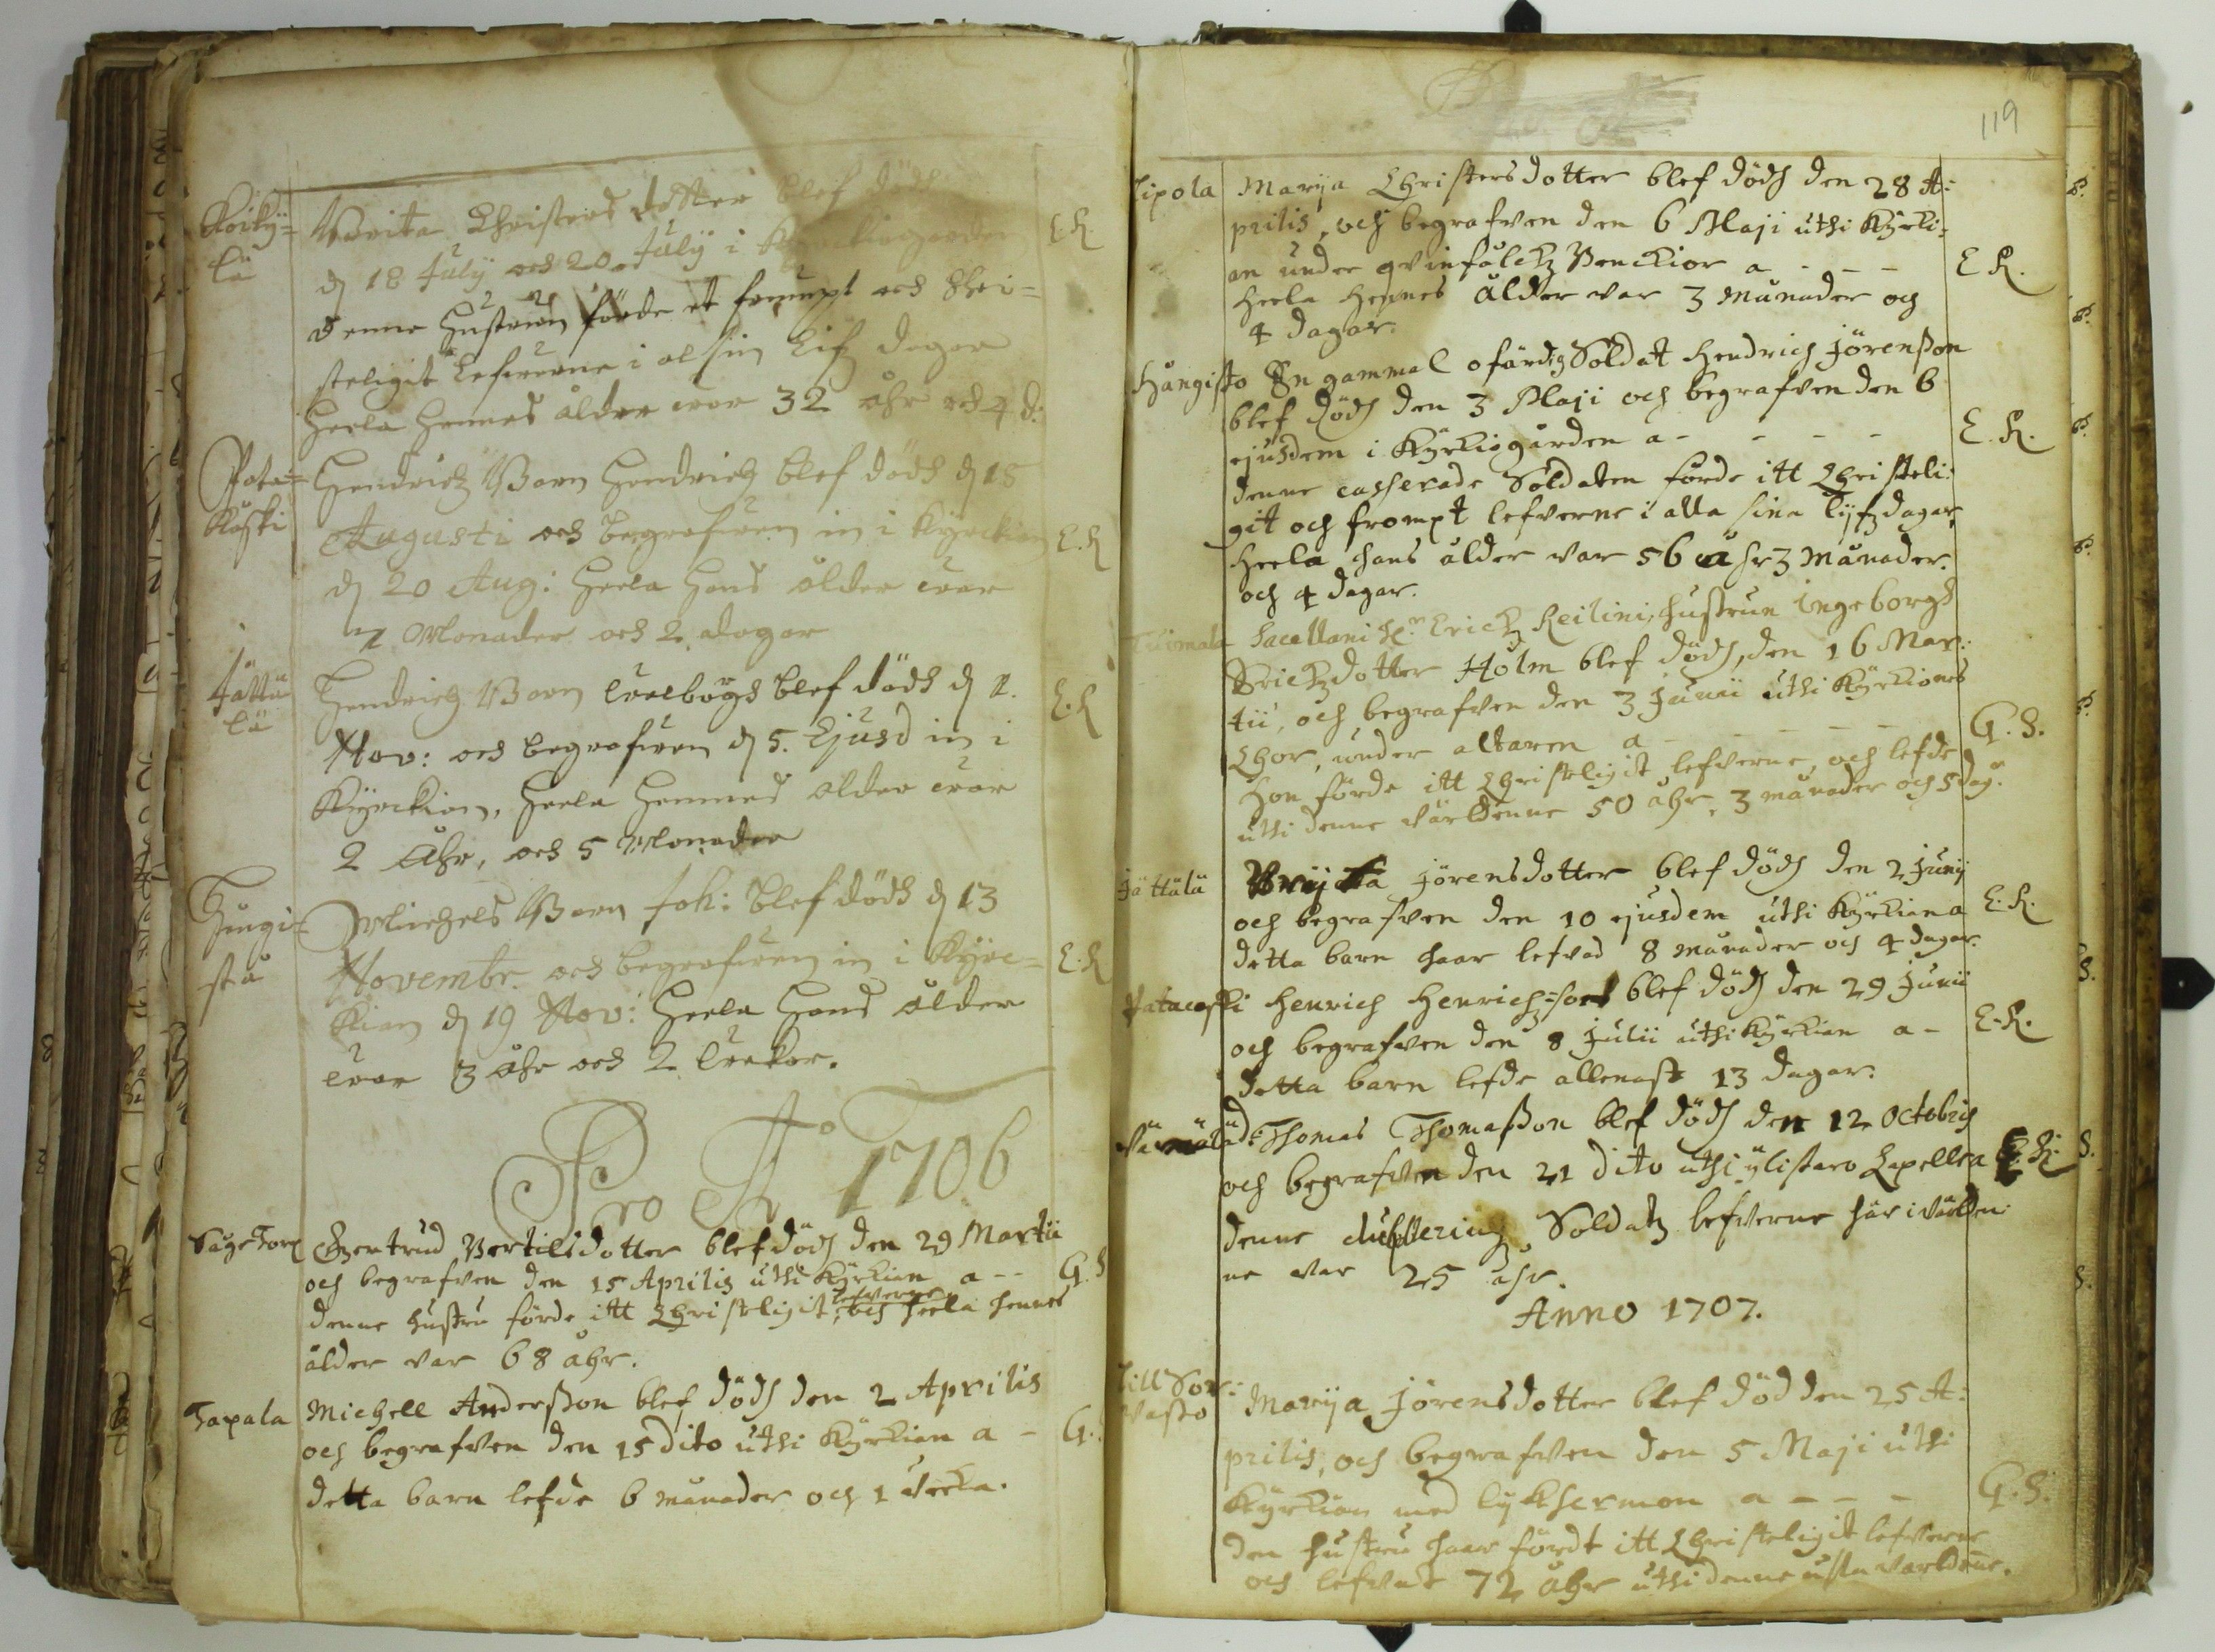 Koiky=
lä
Warita Christers dotter blef dödh
E.R.
d 18 Julij och 20 Julij i Kyrckiogården
denna Hustrun förde et frompt och Chri=
steligit lefwerne i al sin Lifz dagar
Heela Hennes ålder war 32 åhr och 4 d:
Pata=
Koski
Hendrichz Barn Hendrich blef dödh d 18
Augusti och begrafwen in i Kyrckian
E.R
d 20 Aug: Heela Hans ålder war
Monader och 2 dagar
Jättä
lä
Hendrichz Barn Walborgh blef dödh d 1.
E.R
Nov: och begrafwen d 5. Ejusd in i
Kyrckian, Heela Hennes ålder war
2 Åhr, och 5 Monader
Hungi=
stå
Michels Barn Joh: blef dödh d 13
Novembr. och begrafwen in i Kyrc=
E.R
kian d 19 Nov: Heela Hans ålder
war 3 åhr och 2 Wekor.
Pro Ao 1706
Sågetorp
Gertrud Bertilsdotter blef död den 29 Martii
och begrafven den 15 Aprilis uthi Kyrkian a - -
G.S
denne hustru förde itt Christeligit lefverne, och heela hennes
ålder var 68 åhr.
Tapala
Michell Anderßon blef dödh den 2 Aprilis
och begrafven den 15 dito uthi Kyrkian a -
G.
detta barn lefde 6 månader och 1 vecka.
119
Lipola
Marija Christersdotter blef dödh den 28 A:
prilis, och begrafven den 6 Maji uthi Kyrki:
an under qvinfålckz Benckior a - - -
E R.
heela hennes ålder var 3 månader och
4 dagar.
Hångisto
En gammal ofärdig Soldat Hendrich Jörenßon
blef dödh den 3 Maji och begrafven den 6
ejusdem i Kyrkiogården a - - - -
E. R.
denne casserade Soldaten förde itt Christeli:
git och frompt lefverne i alla sina lijfzdagar,
heela hans ålder var 56 åhr 3 månader.
och 4 dagar.
Tuimala
Sacellani Hr Erichz Keilini, hustrun Ingeborgh
Erichzdotter Holm blef dödh, den 16 Mar:
tii, och begrafven den 3 Junii uthi Kyrkiones
Chor, under altaren a - - - -
G. S.
Hon förde itt Christeligit lefverne, och lefde
uthi denne världenne 50 åhr, 3 månader och 5 dag.
Jättälä
Brijta Jörensdotter blef dödh den 2 Junij
och begrafven den 10 ejusdem uthi Kyrkian a
E. R.
detta barn haar lefvad 8 månader och 4 dagar.
Patacoski
Henrich Henrichzson blef dödh den 29 Junii
och begrafven den 8 Julii uthi Kyrkian a -
E. R.
detta barn lefde allenast 13 dagar.
Thomas Thomaßon blef dödh den 12 Octobris
och begrafven den 21 dito uthi Ylistaro Capell a
E. R.
denne dubbleringz Soldatz lefverne här i världen:
ne var 25 åhr.
Anno 1707.
Till Sor:
vasto
Marija Jörensdotter blef död den 25 A:
prilis, och begrafven den 5 Maji uthi
Kyrkian med lyksermon a - - -
G. S.
den hustru haar fördt itt Christeligit lefverne
och lefvat 72 åhr uthi denne usla världenne.